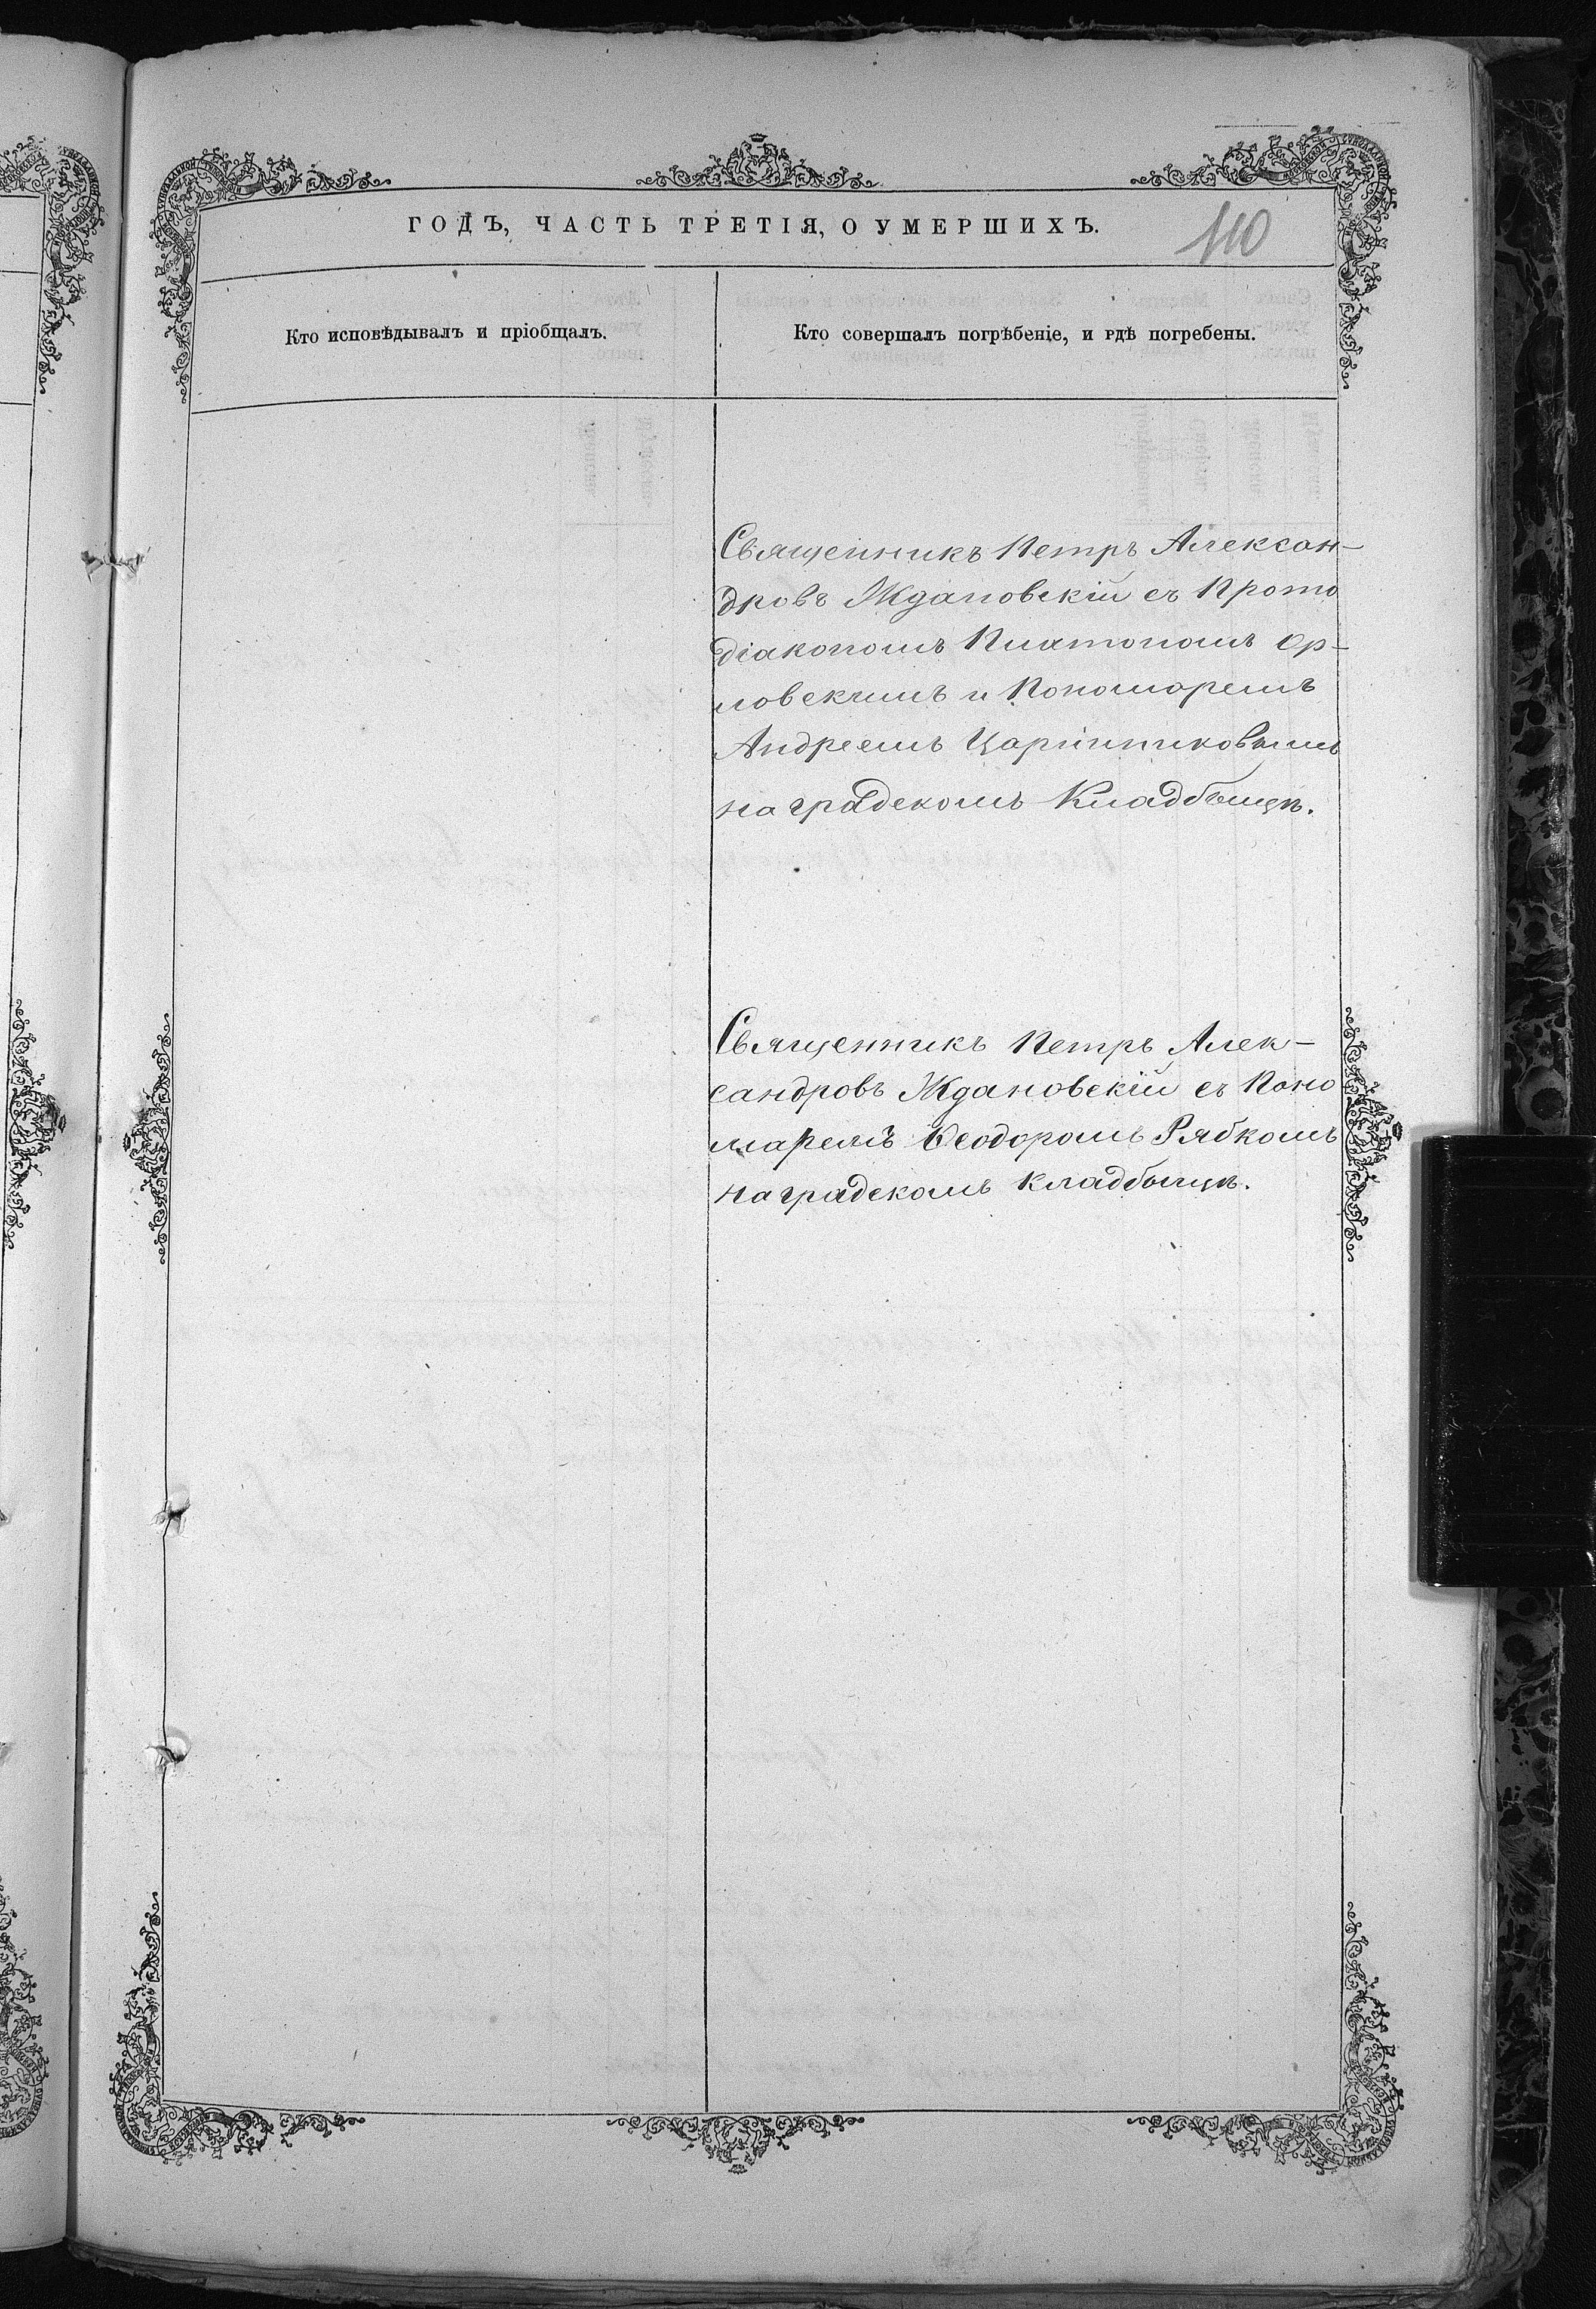 ГОДЪ, ЧАСТЬ ТРЕТІЯ, О УМЕРШИХЪ.
110
Кто исповѣдывалъ и пріобщалъ.
Кто совершалъ погрѣбеніе, и гдѣ погребены.
Священникъ Петръ Алексан-
дровъ Ждановскій съ Прото
діакономъ Платономъ Ор-
ловскимъ и Пономоремъ
Андреемъ
на градскомъ Кладбыщѣ.
Священникъ Петръ Алек-
сандровъ Ждановскій съ Поно
маремъ Ѳеодоромъ Рябкомъ
на градскомъ кладбыщѣ.